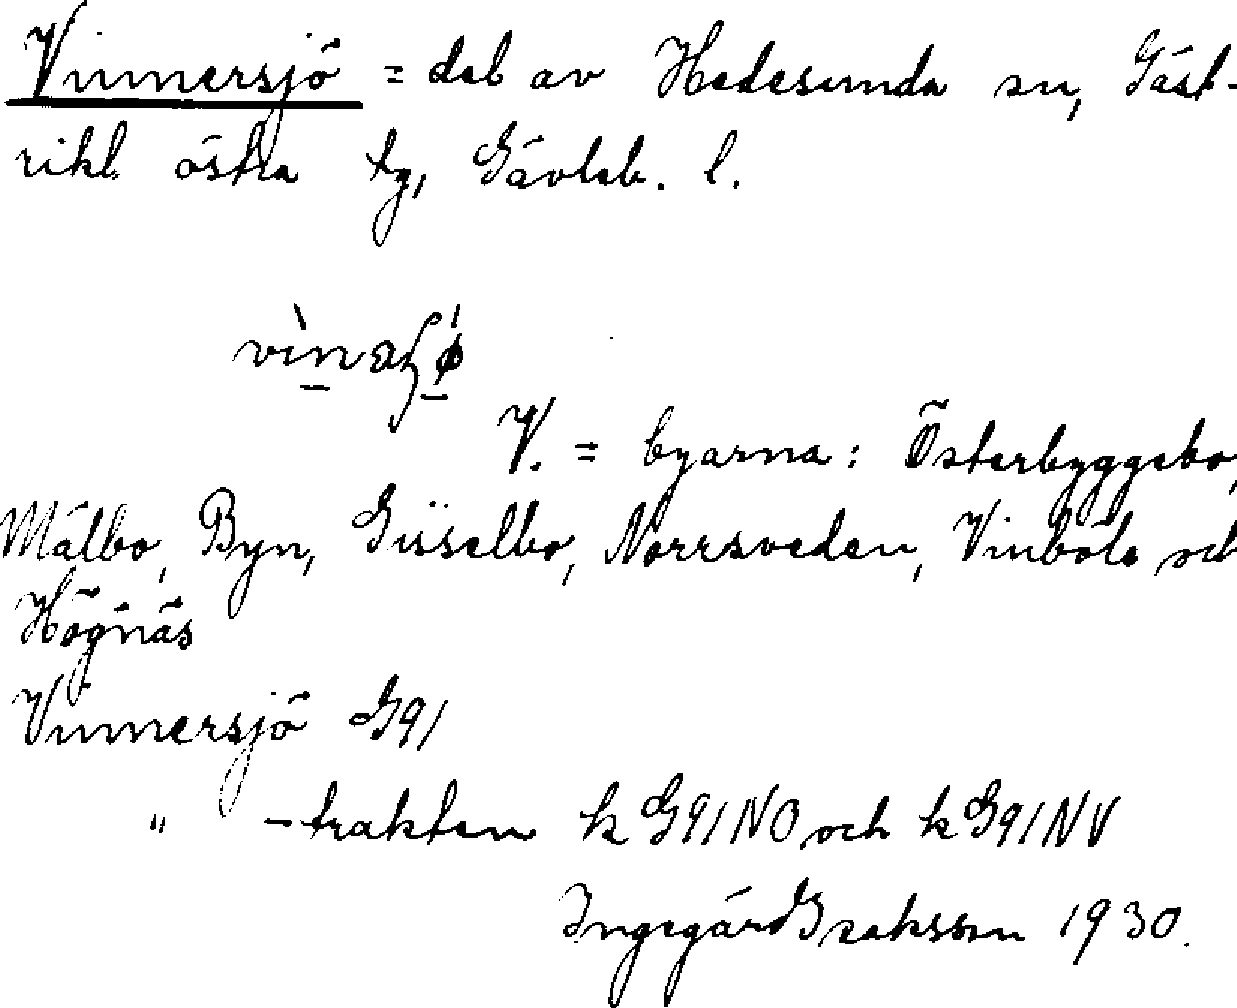 Vinnersjö = del av Hedesunda sn, Gäst-
rikl. östra tg, Gävleb. l.
V. = byarna: Österbyggebo,
Målbo, Byn, Gisselbo, Norrsveden, Vinböle och
Högnäs
Vinnersjö G91
" -trakten k G91NO och k G91NV
Ingegärd Isaksson 1930.